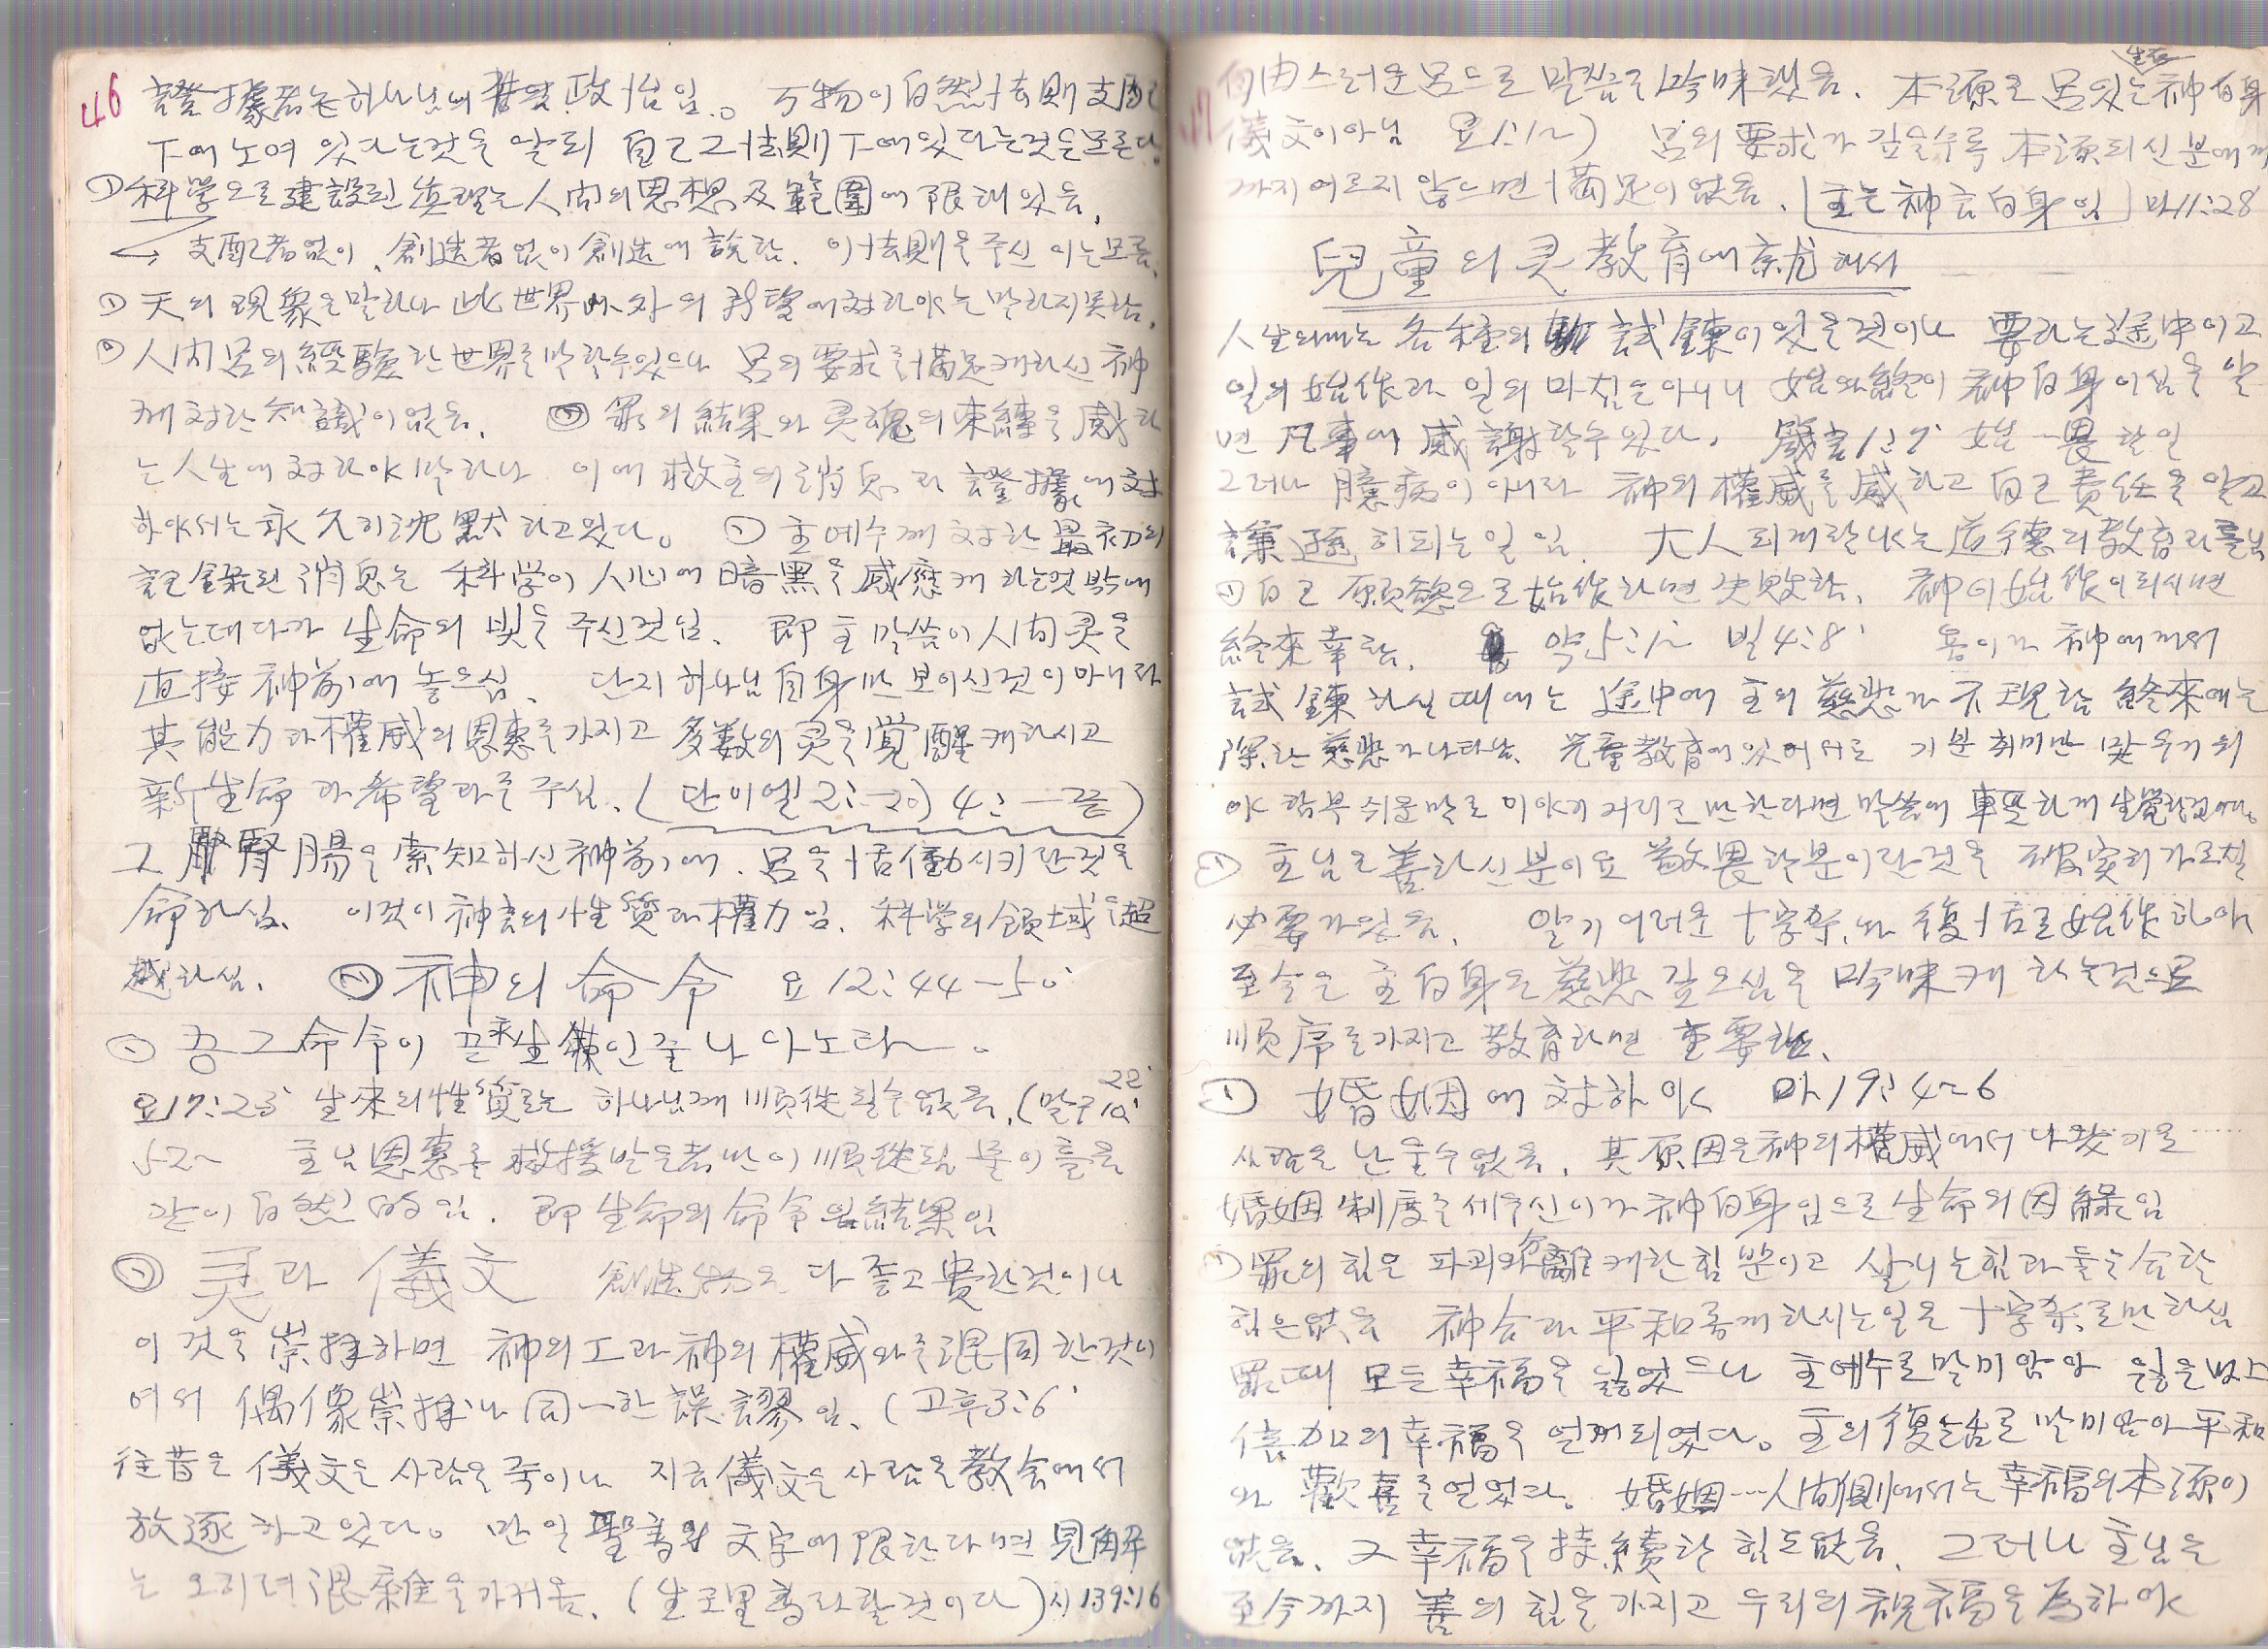 46 證據者는 하나님의 政治임. 万物이 自然法則支配
下에 노여 잇다는것을 알되 自己그法則下에있다는것을모른다.
科学으로建設된 真理는 人间의思想及範圍에 限해있음.
支配者없이, 創造者없이 創造에 說함. 이法則을주신 이는모름.
天의 現象을말하나 此世界以外의 希望에対하야는 말하지못함.
人间 呂의 經驗한世界를말할수있으나 呂의要求를満足케하신 神
께対한 知識이없음. 罪의 結果와 灵魂의束縛을 感하
는人生에 対하야말하나 이에 救主의消息과 證據에対
하야서는永久히沈默하고있다. 主예수께 対한 最初의
記錄된消息는 科学이 人心에 暗黑을 感應케 하는것밖에
없는데다가 生命의 빛을 주신것임. 即 主말씀이人间灵을
直接 神前에 놓으심. 단지 하나님自身만보이신것이아니라
其能力과權威의恩惠를가지고 多数의灵을覚醒케하시고
新生命과希望과를주심. (단이엘2:-20) 4:-끝)
그 腎腸을索知하신神前에 呂을活働시키란것을
命하심. 이것이神言의性質과權力임. 科学의領域을超
越하심. 神의命令 요12:44-50
命令이 永生인줄나아노라~.
요17:23 生來의性質로는 하나님께順從될수없음.(말구 22
52~ 主님恩惠로救援받은者만이順從됨 물이흘음
같이自然的임. 即生命의命令의結果임
灵과 儀文 創造物은 다좋고貴한것이나
이것을崇拝하면 神의工과神의權威와를混同한것이
여서 偶像崇拝나同一한誤謬임. (고후3:6
往昔은儀文은사람을죽이나 지금儀文은사람을教会에서
放逐하고있다. 만일聖書의文字에限한다면見解
는오히려混雜을가져옴. (生로里書라할것이다)시139:16
自由스러운呂으로 말씀을吟味했음. 本源은呂있는神自身 生存
儀文이아님 요1:1~) 呂의要求가깊을수록本源되신분에게
까지이르지않으면満足이없음. [主는神言自身임] 마11:28
兒童의灵教育에就해서
人生의때는 各種의試鍊이있을것이나 要하는途中이고
일의始作과 일의마침은아니니 始와終이神自身이심을알
면 凡事에感謝할수있다. 箴言1:7 始…畏한일
그러나 臆病이아니라 神의權威를感하고自己責任을알고
謙遜히되는일임. 大人되게할나는道德의教育과를님
自己願慾으로始作하면失敗함. 神이始作이되시면
終來幸함. 약5:1~ 빌4:8 神에게서
試鍊하실때에는 途中에主의慈悲가不現함 終來에는
深한慈悲가나타남. 児童教育에있어서도 기분취미만맞우기위
야함부쉬운말로이야기거리로만한다면말씀에輕率하게生覺할것이다.
主님은善하신분이요敬畏할분이란것을確実히가르칠
必要가있음. 알기어려운十字架와復活로始作하야
至今은主自身은慈悲깊으심을吟味케하는것으로
順序를가지고教育하면重要함.
婚姻에対하야 마19:4~6
사람은난울수없음. 其原因은神의權威에서나왔기로……
婚姻制度를세우신이가神自身임으로生命의因緣임
罪의힘은파괴와分離케한힘뿐이고살니는힘과둘을合할
힘은없음 神合과平和롭게하시는일은十字架로만하심
罪때모든幸福을잃었으나主예수로말미암아잃은밧으
倍加의幸福을얻게되였다。主의復活로말미암아平和
와歡喜를얻었다. 婚姻…人间側에서는幸福의本源이
없음. 又幸福을持続할힘도없음. 그러나主님은
至今까지善의힘을가지고우리의祝福을為하야